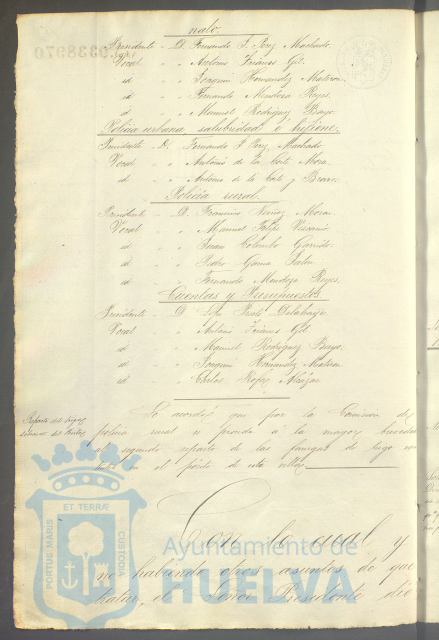 nato.
Presidente - D. Fernando J. Perez Machado.
Vocal " " Antonio Gil.
id " " Joaquin Hernandez Mateos.
id " " Fernando Mendoza Reyes.
id " " Manuel Rodriguez Bayo.
Policia urbana, salubridad é higiene.
Presidente - D. Fernando J. Perez Machado.
Vocal " " Antonio de la Corte Mora.
id " " Antonio de la Corte y Bravo.
Policia rural.
Presidente - D. Francisco Mora.
Vocal " " Manuel Felipe
id " " Juan Colombo Garrido.
id " " Pedro Gama
id " " Fernando Mendoza Reyes.
Cuentas y Presupuestos
Presidente - D.
Vocal " " Antonio Gil.
id " " Manuel Rodriguez Bayo.
id " " Joaquin Hernandez Mateos.
id " " Carlos
Reparto del trigo
Se acordó que por la Comision de
policia rural se proceda á la mayor brevedad
al segundo reparto de las fanegas de trigo
en el pósito de esta villa
Con lo cual y
no habiendo otros asuntos de que
tratar, el Señor Presidente dió
ET TERRÆ
PORTUS MARIS
CUSTODIA
Ayuntamiento de
HUELVA